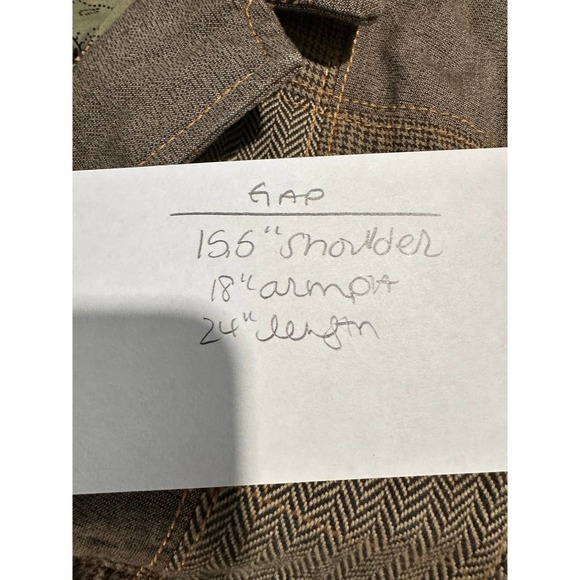 GAP
15.5" shoulder
18" armpit
24" length